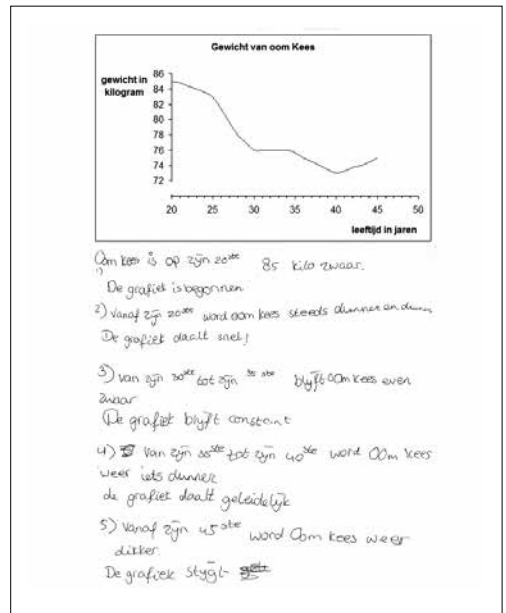 Gewicht van oom Kees
gewicht in
kilogram
86
84
82
80
78
76
74
72
20 25 30 35 40 45 50
leeftijd in jaren
Oom kees is op zijn 20ste 85 kilo zwaar.
1)
De grafiek is begonnen
2) Vanaf zijn 20ste word oom kees steeds dunner en
De grafiek daalt snel!
3) Van zijn 30ste tot zijn 35 ste blijft oom kees even
zwaar
De grafiek blijft constant
4) Van zijn 35ste tot zijn 40ste word Oom kees
weer iets dunner
de grafiek daalt geleidelijk
5) Vanaf zijn 45ste word Oom kees weer
dikker.
De grafiek stijgt